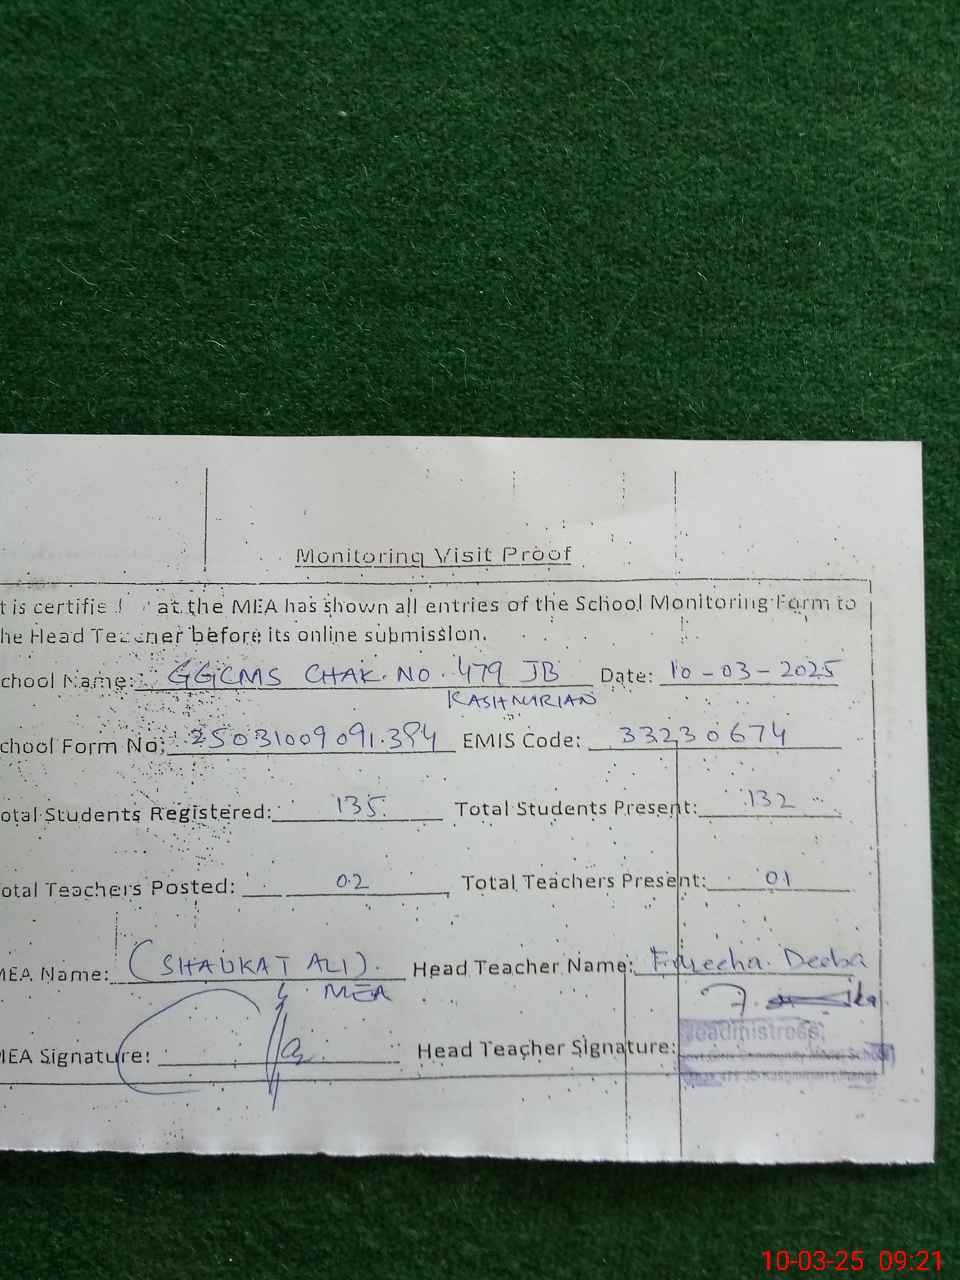 Monitoring Visit Proof
t is certifie at the MEA has shown all entries of the School Monitoring Form to
he Head Teacher before its online submission.
chool Name: GGCMS CHAK. NO. 479 JB Date: 10-03-2025
KASHMIRIAN
chool Form No: 25031009091384 EMIS Code: 33230674
otal Students Registered: 135 Total Students Present: 132
otal Teachers Posted: 02 Total Teachers Present: 01
MEA Name: (SHAUKAT ALI). Head Teacher Name: Fareeha Deeba
MEA
MEA Signature: Head Teacher Signature:
Headmistress
10-03-25 09:21